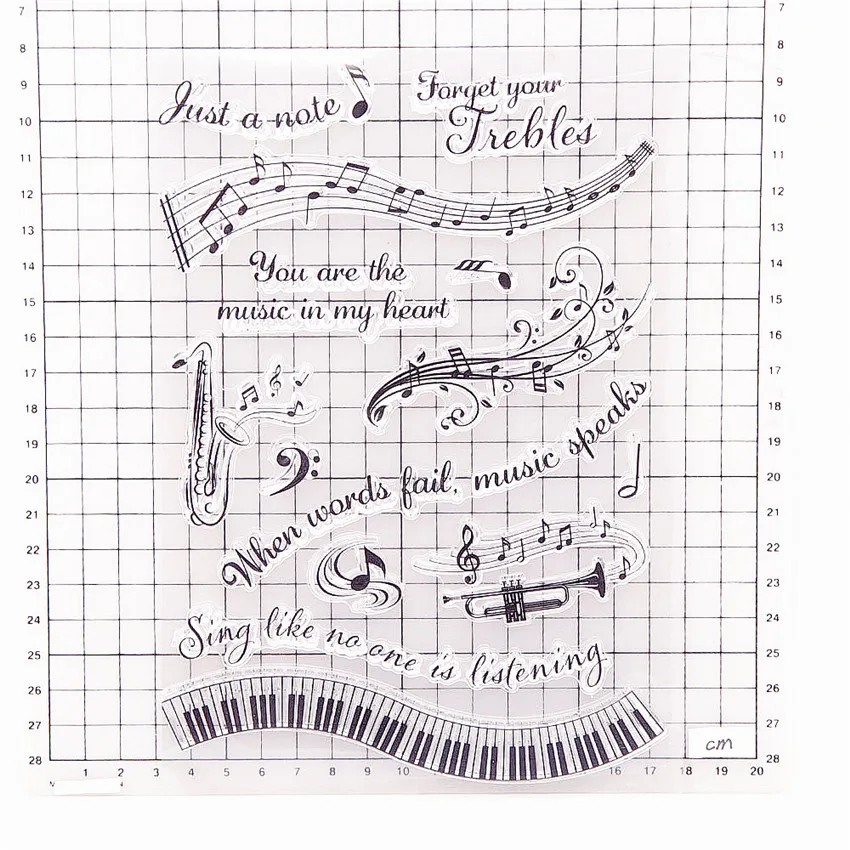 7 7
8 8
9 9
Just a note
Forget your
Trebles
10 10
11 11
12 12
13 13
14 14
You are the
music in my heart
15 15
16 16
17 17
18 18
19 19
When words fail, music speaks
20 20
21 21
22 22
23 23
24 24
Sing like no one is listening
25 25
26 26
27 27
cm
28 28
1 2 3 4 5 6 7 8 9 10 16 17 18 19 20